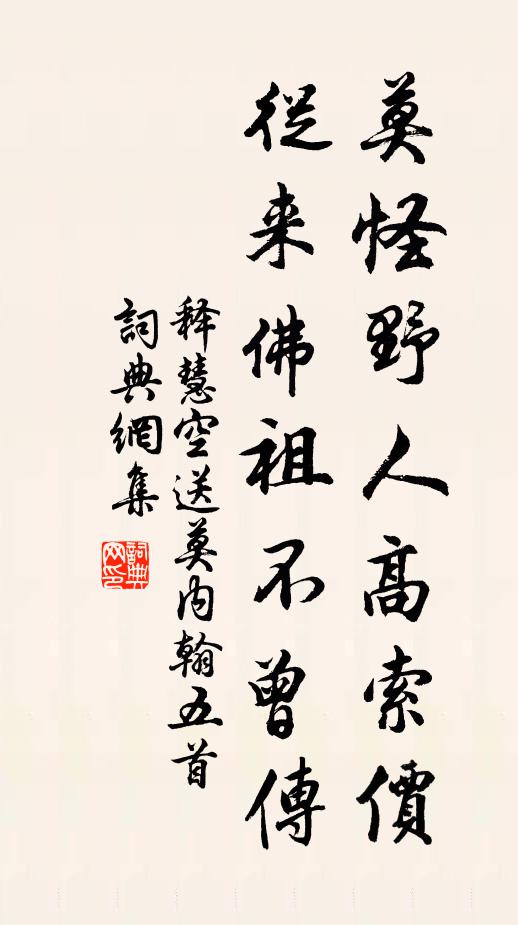 莫怪野人高索價
從来佛祖不曾傳
释慧空送莫内翰五首
詞典網集
詞典网印